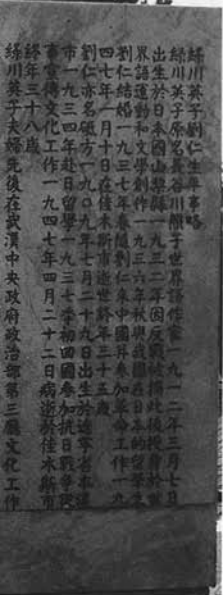 绿川英子刘仁生平事略
绿川英子原名長谷川照子世界語作家一九一二年三月七日
出生於日本國山梨縣一九三二年因反戰被捕此後投身於世
界語運動和文學創作一九三六年秋與我國在日本的留學生
劉仁結婚一九三七年春隨劉仁來中國幷參加革命工作一九
四七年一月十日在佳木斯市逝世終年三十五歲
劉仁亦名砥方一九〇九年七月二十九日出生於遼寧省本溪
市一九三四年赴日留學一九三七季初回國參加抗日戰爭從
事宣傳文化工作一九四七年四月二十二日病逝於佳木斯市
終年三十八歲
綠川英子夫婦先後在武漢中央政府政治部第三廳文化工作